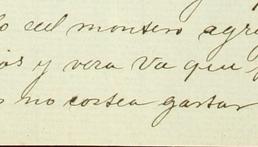 o del montero agre
os y vera Va que
s no costea gastar